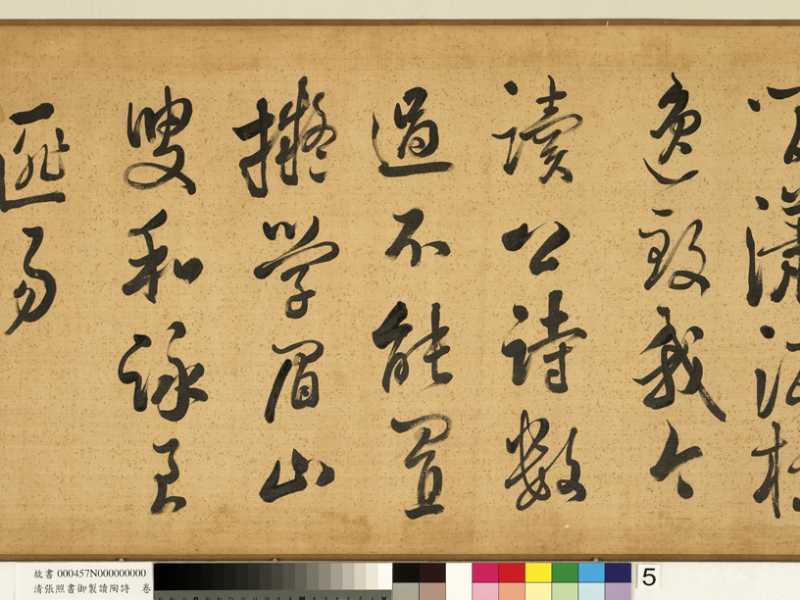 瀟
逸致我今
讀公詩數
過不能置
擬學眉山
叟和詠良
匪易
故書 000457N000000000
清張照書御製讀陶詩 卷
5